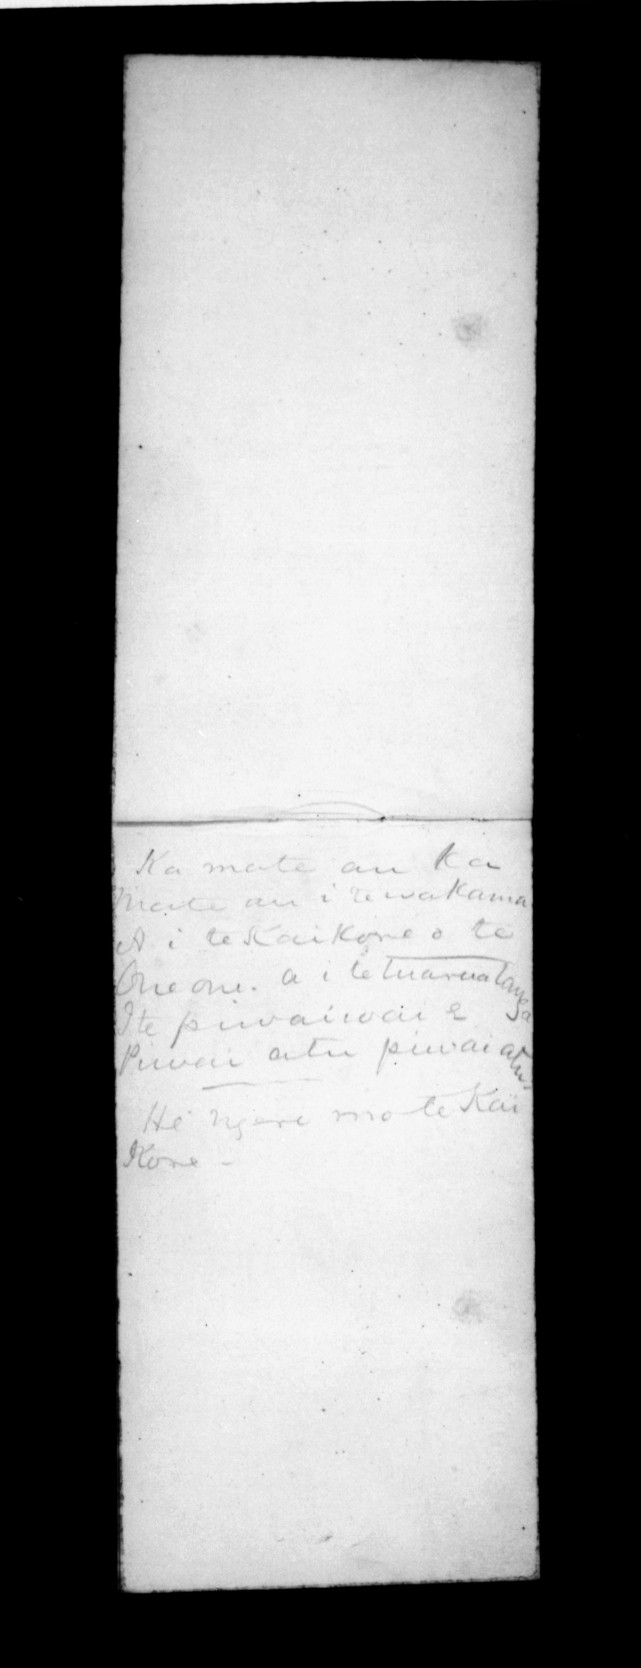 Ka mate au ka
Mate au i te wakama
A i te Kaikore o te
One one. a i te tuaruatanga
I te piwaiwai e
Piwai atu piwai atu
He ngeri mo te Kai
Kore -